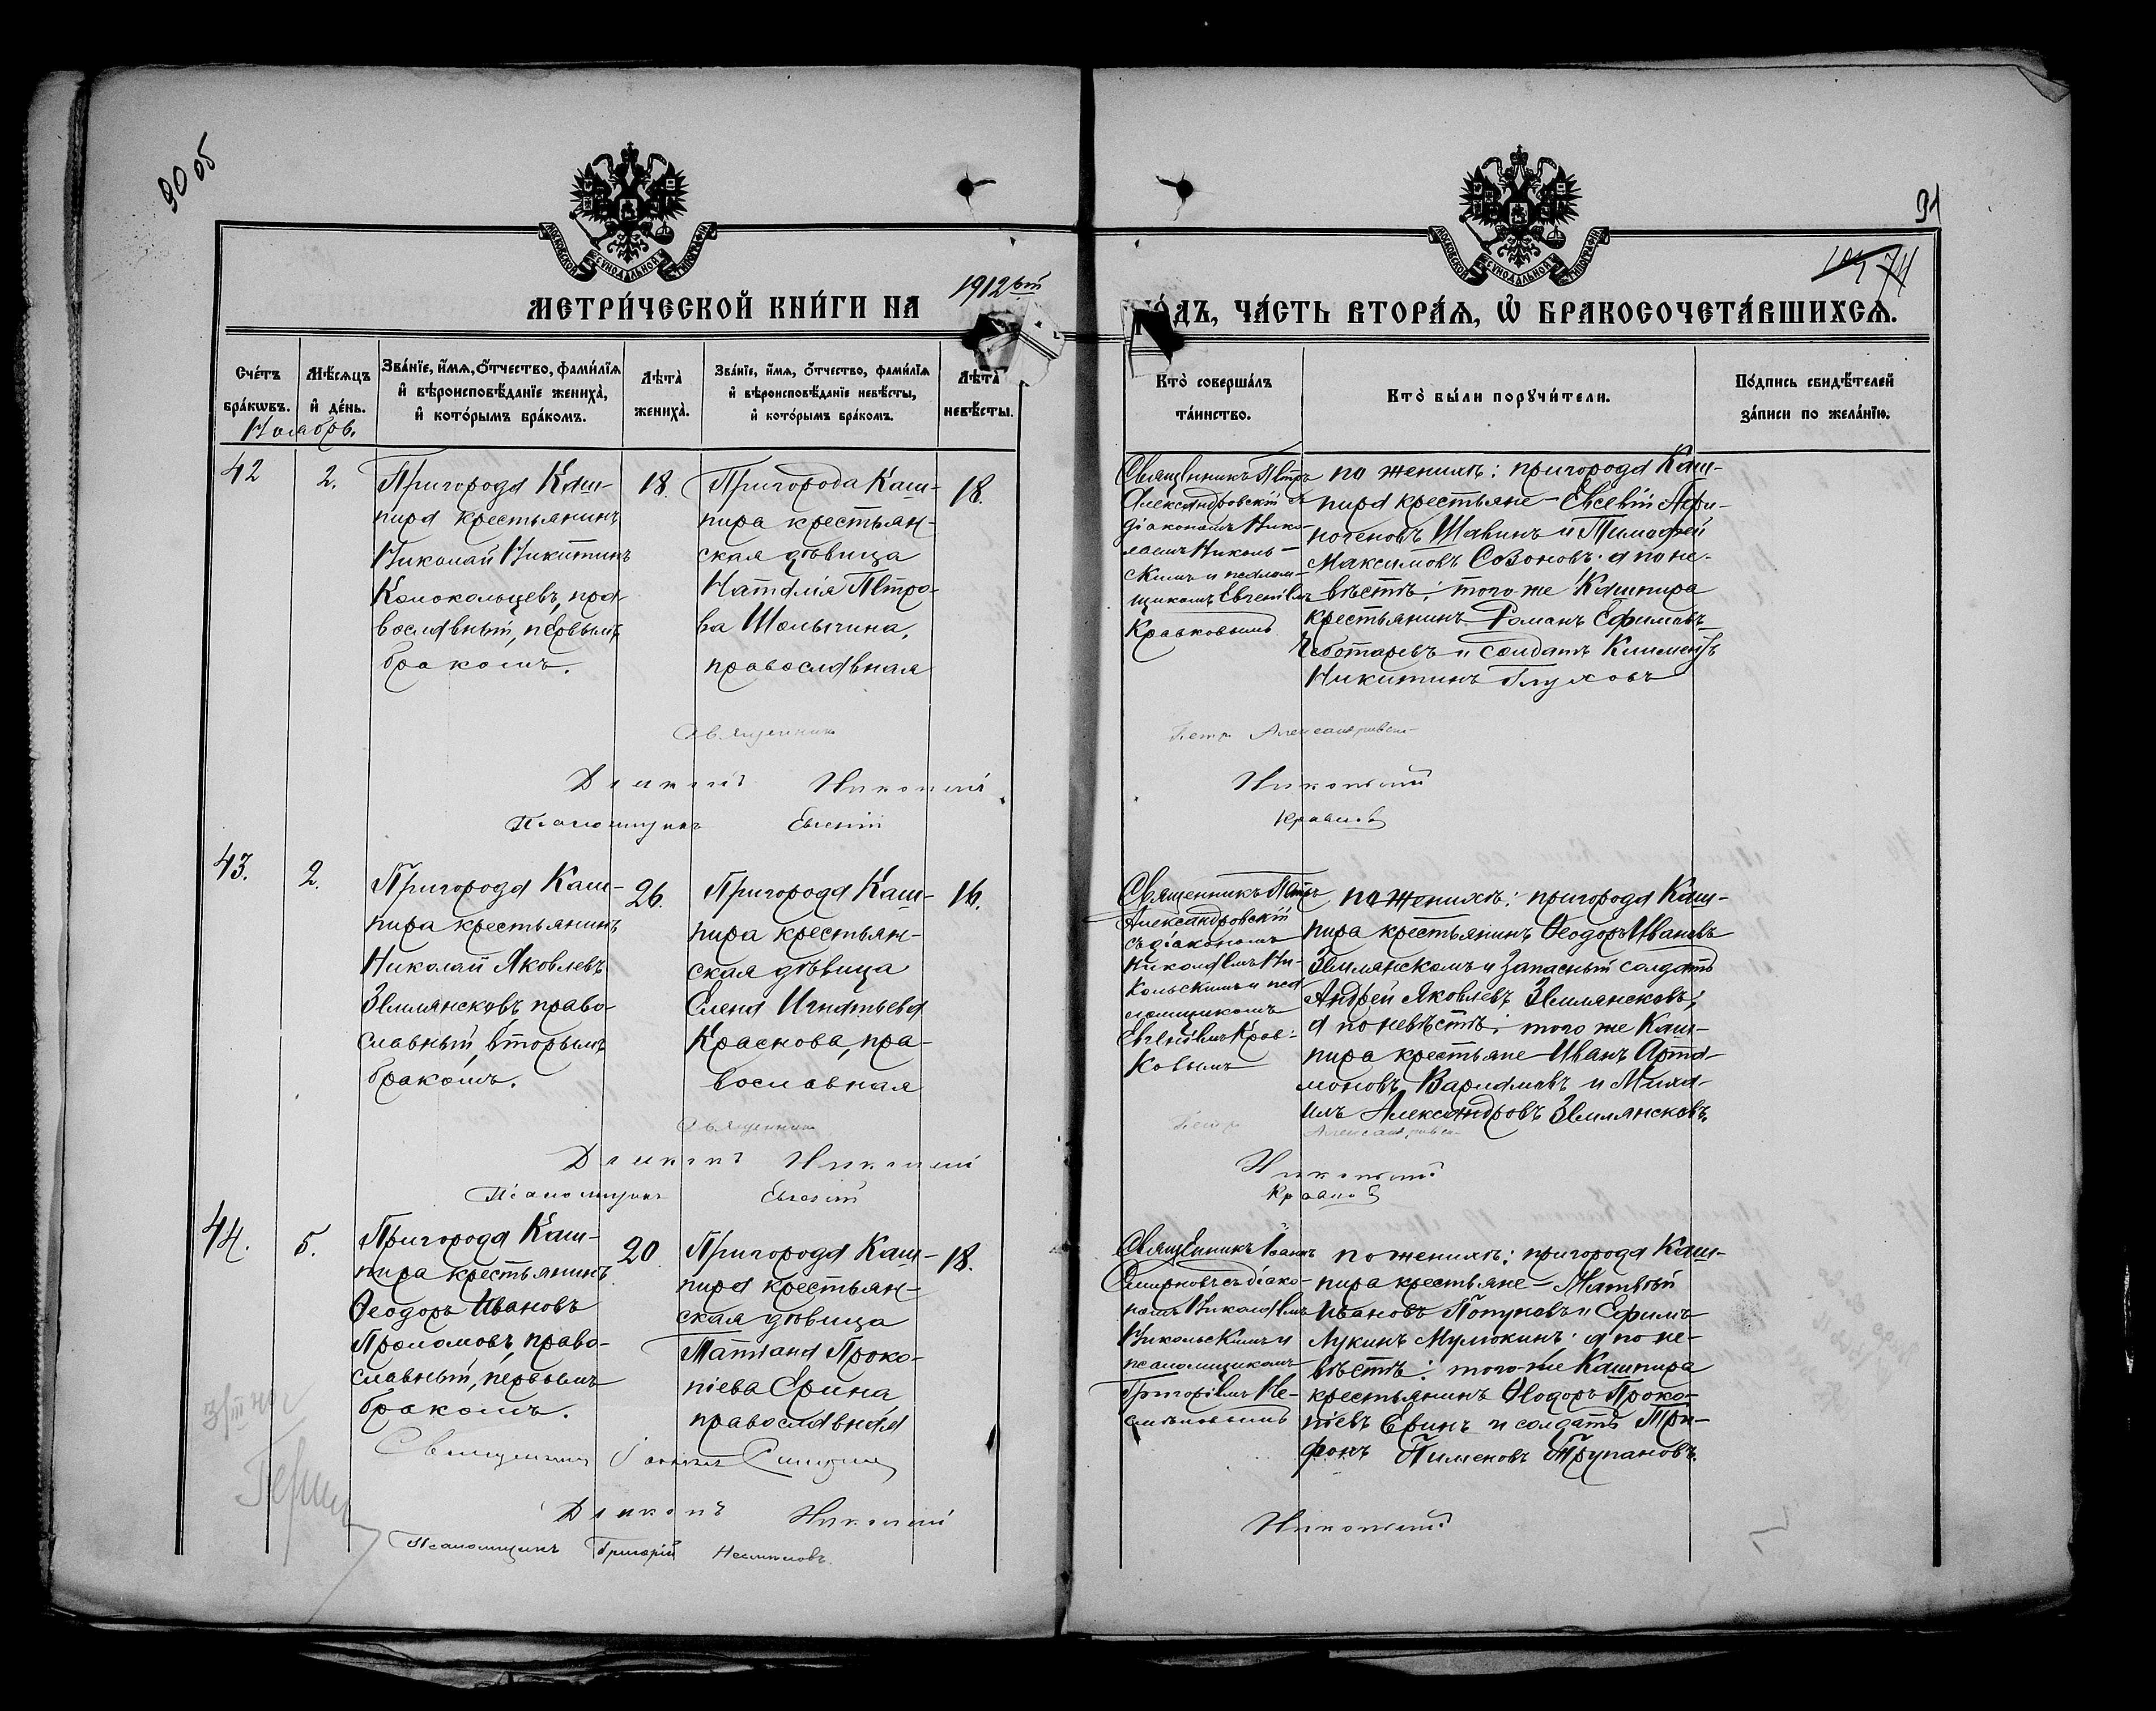 90 об
91
МОСКОВСКОЙ СѴНОДАЛЬНОЙ ТИПОГРАФІИ
МОСКОВСКОЙ СѴНОДАЛЬНОЙ ТИПОГРАФІИ
74
МЕТРИ́ЧЕСКОЙ КНИ́ГИ НА 1912ый
ГО́ДЪ, ЧА́СТЬ ВТОРА́Ѧ, Ѡ҆ БРАКОСОЧЕТА́ВШИХСѦ.
Сче́тъ
бра́кѡвъ.
Мѣ́сѧцъ
и҆ де́нь.
Зва́нїе, и҆́мѧ, ѻ҆́тчество, фами́лїѧ
и҆ вѣроисповѣ́данїе жениха̀,
и҆ кото́рымъ бра́комъ.
Лѣта̀
жениха̀.
Зва́нїе, и҆́мѧ, ѻ҆́тчество, фами́лїѧ
и҆ вѣроисповѣ́данїе невѣ́сты,
и҆ кото́рымъ бра́комъ.
Лѣта̀
невѣ́сты.
Кто̀ соверша́лъ
та́инство.
Кто̀ бы́ли порꙋчи́тели.
По́дпись свидѣ́телей
за́писи по жела́нїю.
Ноябрь.
42
2.
Пригорода Каш-
пира крестьянинъ
Николай Никитинъ
Колокольцевъ, пра-
вославный, первымъ
бракомъ.
18.
Пригорода Каш-
пира крестьян-
ская дѣвица
Наталія Петро-
ва Шалыгина,
православная
18.
Священникъ Петръ
Александровскій съ
діакономъ Нико-
лаемъ Николь-
скимъ и псалом-
щикомъ Евгеніемъ
Кравковымъ
по женихѣ: пригорода Каш-
пира крестьяне – Евсевій Афи-
ногеновъ Шавинъ и Тимофей
Максимовъ Созоновъ; а по не-
вѣстѣ: того же Кашпира
крестьянинъ Романъ Ефимовъ
Чеботаревъ и солдатъ Климентъ
Никитинъ Глуховъ
Священник Петр Александровск
Діаконъ Николай Никольскій
Псаломщикъ Евгеній Кравковъ
43.
2.
Пригорода Каш-
пира крестьянинъ
Николай Яковлевъ
Землянсковъ, право-
славный, вторымъ
бракомъ.
26.
Пригорода Каш-
пира крестьян-
ская дѣвица
Елена Игнатьева
Краснова, пра-
вославная
16.
Священникъ Петръ
Александровскій
съ діакономъ
Николаемъ Ни-
кольскимъ и пса
ломщикомъ
Евгеніемъ Крав-
ковымъ
по женихѣ: пригорода Каш-
пира крестьянинъ Ѳеодоръ Ивановъ
Землянсковъ и запасный солдатъ
Андрей Яковлевъ Землянсковъ;
а по невѣстѣ: того же Каш-
пира крестьяне – Иванъ Арта-
моновъ Варламовъ и Миха-
илъ Александровъ Землянсковъ
Священник Петр Александровск
Діаконъ Николай Никольскій
Псаломщикъ Евгеній Кравковъ
44.
5.
Пригорода Каш-
пира крестьянинъ
Ѳеодоръ Ивановъ
Проломовъ, право-
славный, первымъ
бракомъ.
20.
Пригорода Каш-
пира крестьян-
ская дѣвица
Татіана Проко-
піева Ерина
православная
18.
Священникъ Іоаннъ
Смирновъ съ діако-
номъ Николаемъ
Никольскимъ и
псаломщикомъ
Григоріемъ Не-
смѣловымъ
по женихѣ: пригорода Каш-
пира крестьяне – Матвѣй
Ивановъ Попуновъ и Ефимъ
Лукинъ Мулюкинъ; а по не-
вѣстѣ: того-же Кашпира
крестьянинъ Ѳеодоръ Проко-
піевъ Еринъ и солдатъ Три-
фонъ Пименовъ Трупановъ.
Священникъ Іоаннъ Смирновъ
Діаконъ Николай Никольскій
Псаломщикъ Григорій Несмѣловъ.